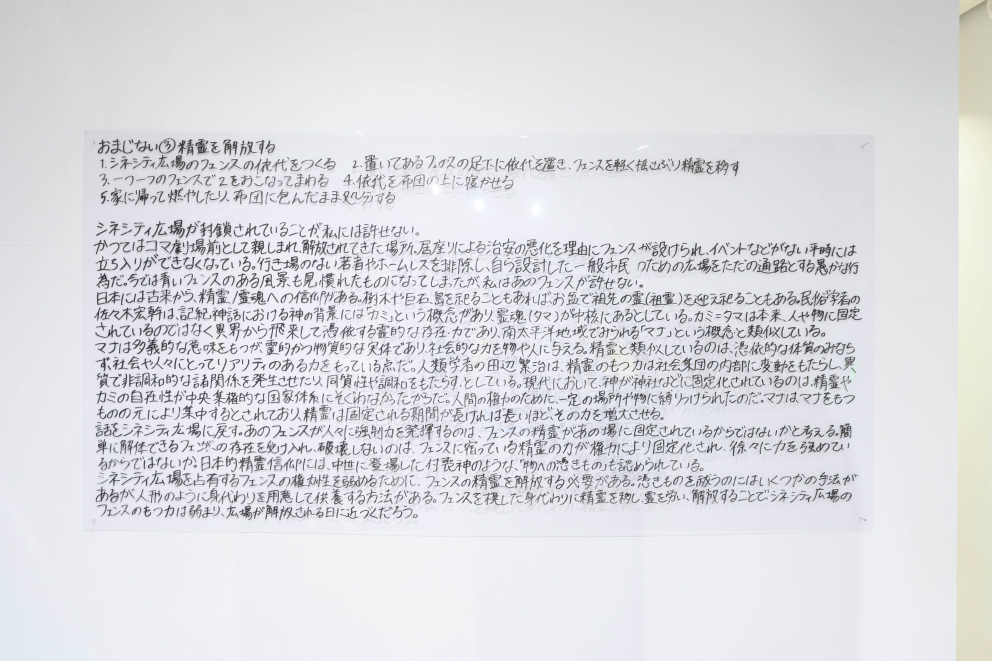 おまじない③精霊を解放する
1.シネシティ広場のフェンスの依代をつくる 2.置いてあるフェンスの足下に依代を置き、フェンスを軽く揺さぶり精霊を移す
3.一つ一つのフェンスで2をおこなってまわる 4.依代を布団の上に寝かせる
5.家に帰って燃やしたり、布団に包んだまま処分する
シネシティ広場が封鎖されていることが私には許せない。
かつてはコマ劇場前として親しまれ、解放されてきた場所。居座りによる治安の悪化を理由にフェンスが設けられ、イベントなどがない平時には
立ち入りができなくなっている。行き場のない若者やホームレスを排除し、自ら設計した一般市民のための広場をただの通路とする愚かな行
為だ。今では青いフェンスのある風景も見慣れたものになってしまったが、私はあのフェンスが許せない。
日本には古来から、精霊/霊魂への信仰がある。樹木や巨石、島を祀ることもあれば、お盆で祖先の霊(祖霊)を迎え祀ることもある。民俗学者の
佐々木宏幹は、記紀神話における神の背景には「カミ」という概念があり、霊魂(タマ)が中核にあるとしている。カミ=タマは本来、人や物に固定
されているのではなく異界から飛来して憑依する霊的な存在、力であり、南太平洋地域でみられる「マナ」という概念と類似している。
マナは多義的な意味をもつが、霊的かつ物質的な実体であり、社会的な力を物や人に与える。精霊と類似しているのは、憑依的な体質のみなら
ず、社会や人々にとってリアリティのある力をもっている点だ。人類学者の田辺繁治は、精霊のもつ力は社会集団の内部に変動をもたらし、異
質で非調和的な諸関係を発生させたり、同質性や調和をもたらす、としている。現代において、神が神社などに固定化されているのは、精霊や
カミの自在性が中央集権的な国家体系にそぐわなかったからだ。人間の権力のために、一定の場所や物に縛りつけられたのだ。マナは、マナをもつ
ものの元により集中するとされており、精霊は固定される期間が長ければ長いほど、その力を増大させる。
話をシネシティ広場に戻す。あのフェンスが人々に強制力を発揮するのは、フェンスの精霊があの場に固定されているからではないかと考える。簡
単に解体できるフェンスの存在を受け入れ、破壊しないのは、フェンスに宿っている精霊の力が権力により固定化され、徐々に力を強めてい
るからではないか。日本的精霊信仰には、中世に登場した付喪神のような、“物への憑きもの”も認められている。
シネシティ広場を占有するフェンスの権力性を弱めるために、フェンスの精霊を解放する必要がある。憑きものを祓うのにはいくつかの手法が
あるが、人形のように身代わりを用意して供養する方法がある。フェンスを模した身代わりに精霊を移し、霊を労い、解放することでシネシティ広場の
フェンスのもつ力は弱まり、広場が解放される日に近づくだろう。